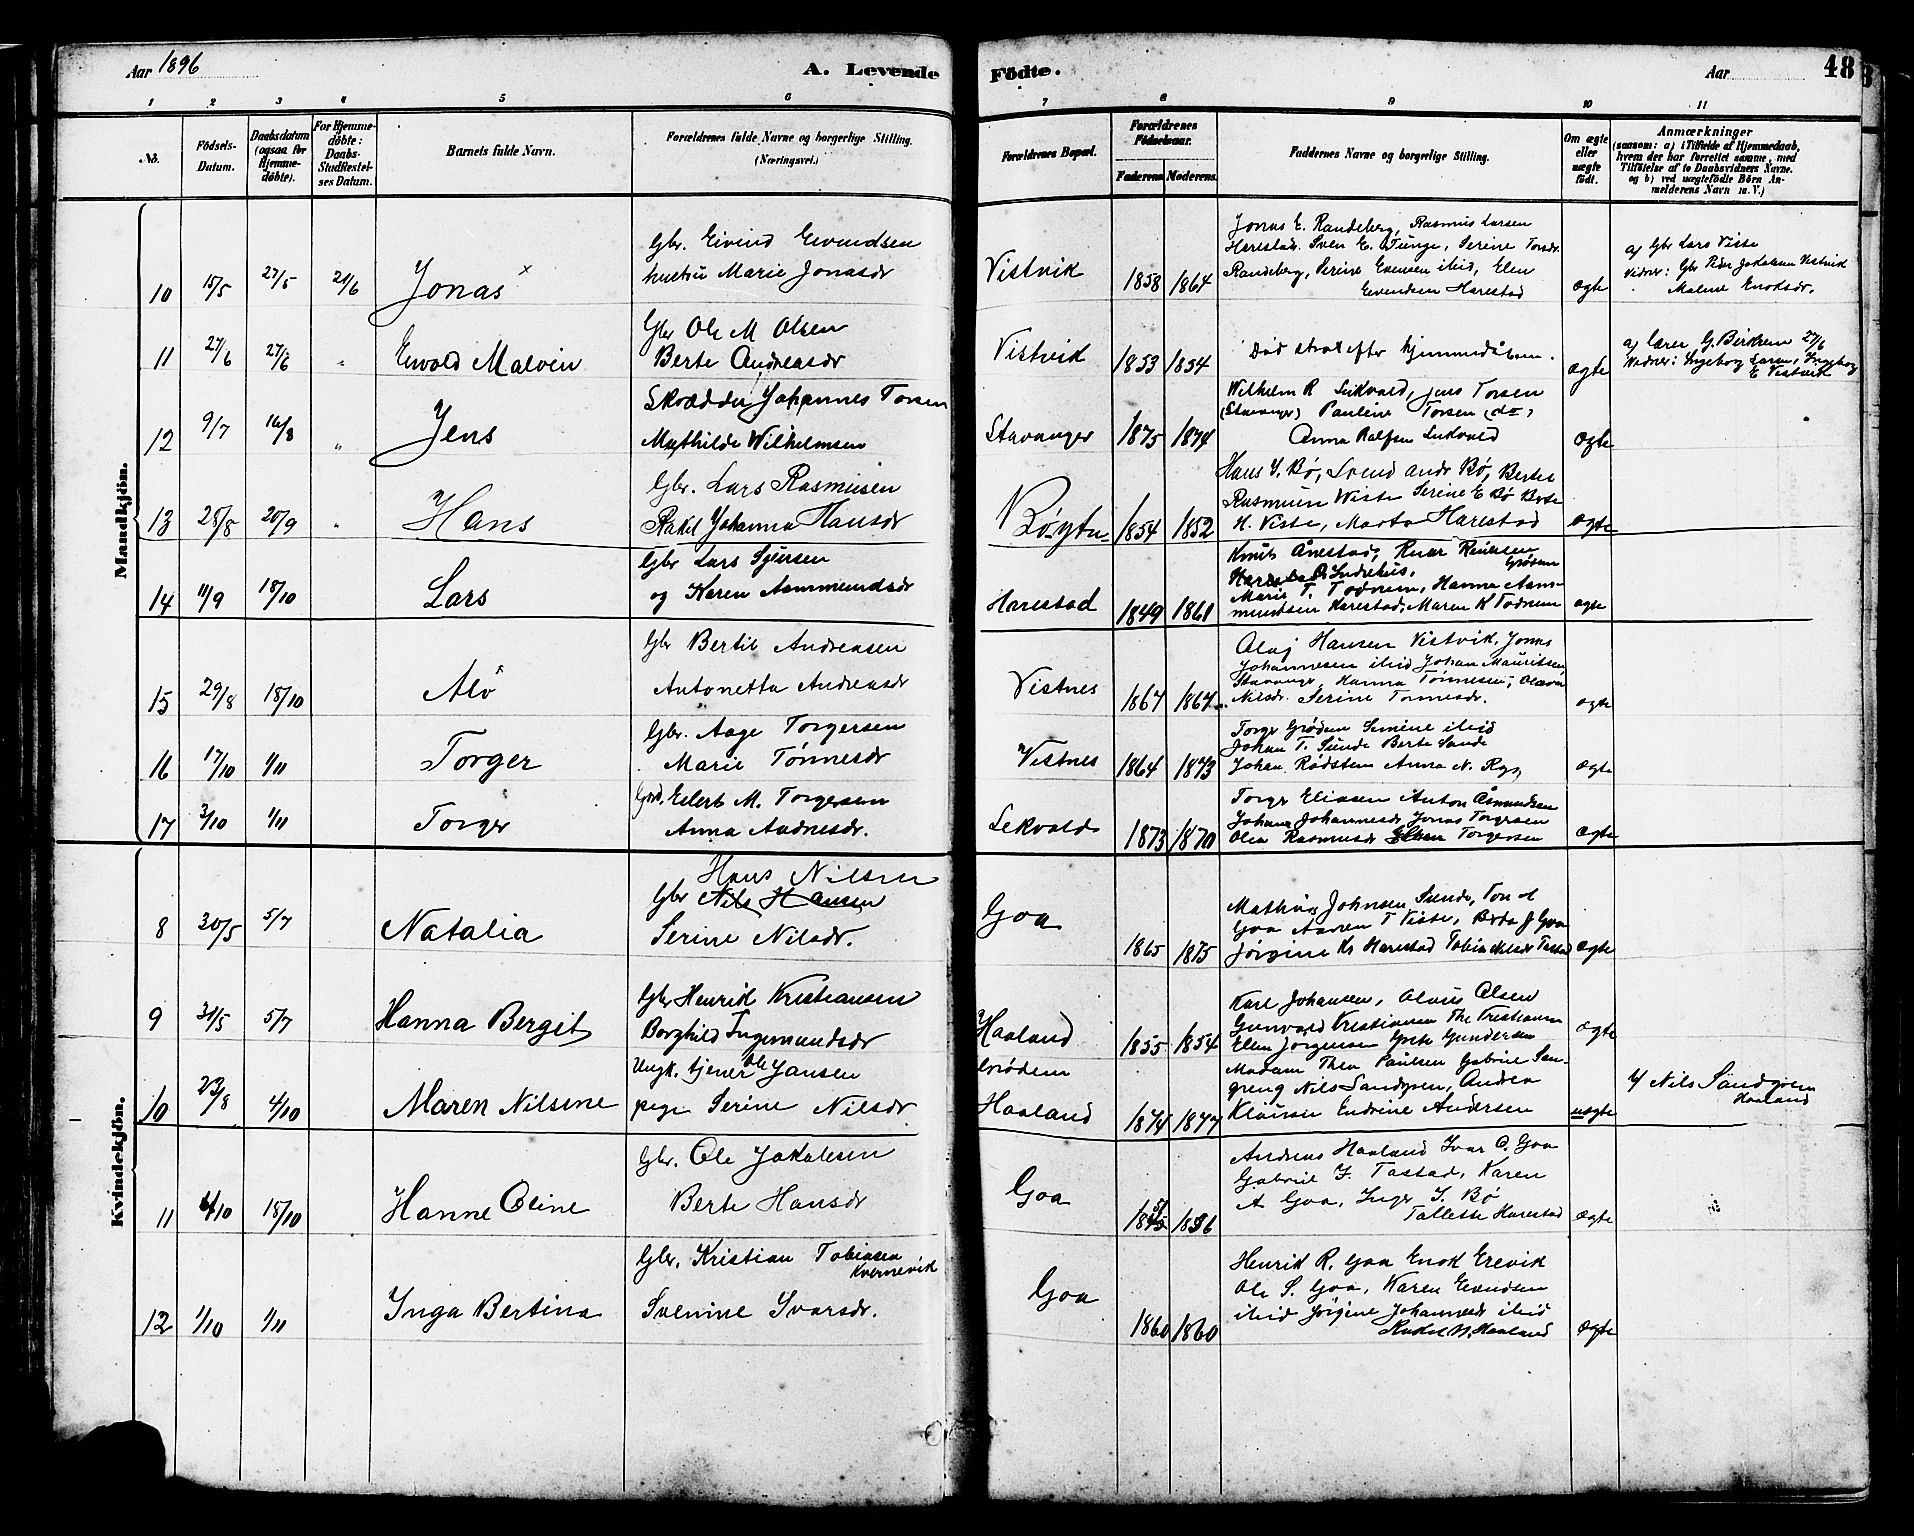 Aar 1896
A. Levende
Födte.
Aar
48
1 2 3 4 5 6 7 8 9 10 11
No.
Födsels-
Datum.
Daabsdatum
(ogsaa for
Hjemme-
döbte).
For Hjemme-
döbte:
Daabs-
Stadfæstel-
ses Datum.
Barnets fulde Navn.
Forældrenes fulde Navne og borgerlige Stilling.
(Næringsvei.)
Forældrenes Bopæl.
Forældrenes
Födselsaar.
Faderens Moderens
Faddernes Navne og borgerlige Stilling.
Om ægte
eller
uægte
födt.
Anmærkninger
(saasom: a) i Tilfælde af Hjemmedaab,
hvem der har forrettet samme, med
Tilföielse af to Daabsvidners Navne.
og b) ved uægtefödte Börn An-
melderens Navn m. V.)
Mandkjön.
10 15/5 27/5 21/6 Jonas
Gbr. Eivind Eivendsen
hustru Marie Jonasdr
Vistvik 1858 1864
Jonas E. Randeberg, Rasmus Larsen
Harestad. Sven E. Tunge, Serine
Randeberg, Serine Evensen ibid, Elen
Eivendsen Harestad
ægte
a) Gbr Lars Viste
Vidner: Gbr Peder Jakobsen Vistvik
Malene Enoksdr.
11 27/6 27/6 " Ewald Malvin
Gbr Ole M Olsen
Berte Andreasdr
Vistvik 1853 1854
Död strax efter hjemmedåben.
ægte
a) Lærer G. Birkrem 27/6
Vidner: Ingeborg Larsen, Ingeborg
E Vistvik
12 9/7 16/8 " Jens
Skrædder Johannes Torsen
Mathilde Wilhelmsen
Stavanger 1875 1874
Wilhelm R Lekvold, Jens Torsen
(Stavanger) Pauline Torsen (do)
Anna Ralfsen Lekvold
ægte
13 28/8 20/9 " Hans
Gbr. Lars Rasmusen
Rakel Johanna Hansdr
Böytu 1854 1852
Hans J. Bø, Svend Andr Bø, Berter
Rasmusen Wiste Serine E Bø Berte
H. Viste, Marta Harestad
ægte
14 11/9 18/10 Lars
Gbr Lars Sjursen
og Karen Aammundsdr
Harestad 1849 1861
Knut Ånestad,
Grödem
Indrehus.
Marie T. Todnem, Hanna Aam-
mundsen Harestad, Maren K Todnem
ægte
15 29/8 18/10 Alö
Gbr Bertil Andreasen
Antonetta Andreasdr
Vistnes 1867 1867
Olaj Hansen Vistvik, Jonas
Johannesen ibid Johan Mauritsen
Stavanger, Hanna Tönnesen, Olava
Nilsdr. Serine Tönnesdr.
ægte
16 17/10 1/11 Torger
Gbr. Aage Torgersen
Marie Tönnesdr
Vistnes 1864 1873
Torger Grödem Semine ibid
Johan T. Sunde Berte Sande
Johan Rödsten Anna N. Ryg
ægte
17 3/10 1/11 Torger
Gbr. Eilert M. Torgersen
Anna Andresdr.
Lekvold 1873 1870
Torger Eliasen Anton Åsmundsen
Johanna Johannesdr Jonas Torgersen
Olea Rasmusdr Torgersen
ægte
Kvindekjön.
8 30/5 5/7 Natalia
Hans Nilsen
Gbr Nils Hansen
Serine Nilsdr.
Goa 1865 1875
Mathias Johnsen Sunde, Ton H
Goa Aamen T Viste, Berta J Goa
Jörgine Kr Harestad Tobia Nilsdr Tastad
ægte
9 31/5 5/7 Hanna Bergit
Gbr Henrik Kristiansen
Borghild Ingemundsdr
Haaland 1855 1854
Karl Johansen, Olaus Olsen
Gunvald Kristiansen The Kristiansen
Elen Jörgensen Grete Gundersen
ægte
10 23/8 4/10 Maren Nilsine
Ungk. tjener Ole Jansen
pige Serine Nilsdr
Grödem
Haaland 1874 1877
Madam Thea Paulsen Gabriel San-
greng Nils Sandgren, Andrea
Klausen Endrine Andersen
uægte
b) Nils Sandgren
Haaland
11 4/10 18/10 Hanne Oline
Gbr. Ole Jakobsen
Berte Hansdr
Goa 1845 1856
Andreas Haaland Ivar O. Goa
Gabriel J. Tastad, Karen
A Goa, Inger J. Bö
Tallette Harestad
ægte
12 1/10 1/11 Inga Bertina
Gbr. Kristian Tobiasen
Kvernevik
Svenine Ivarsdr.
Goa 1860 1860
Henrik R. Goa Enok Erevik
Ole S. Goa, Karen Evendsen
ibid Jörgine Johannesdr ibid
Rakel N. Haaland
ægte